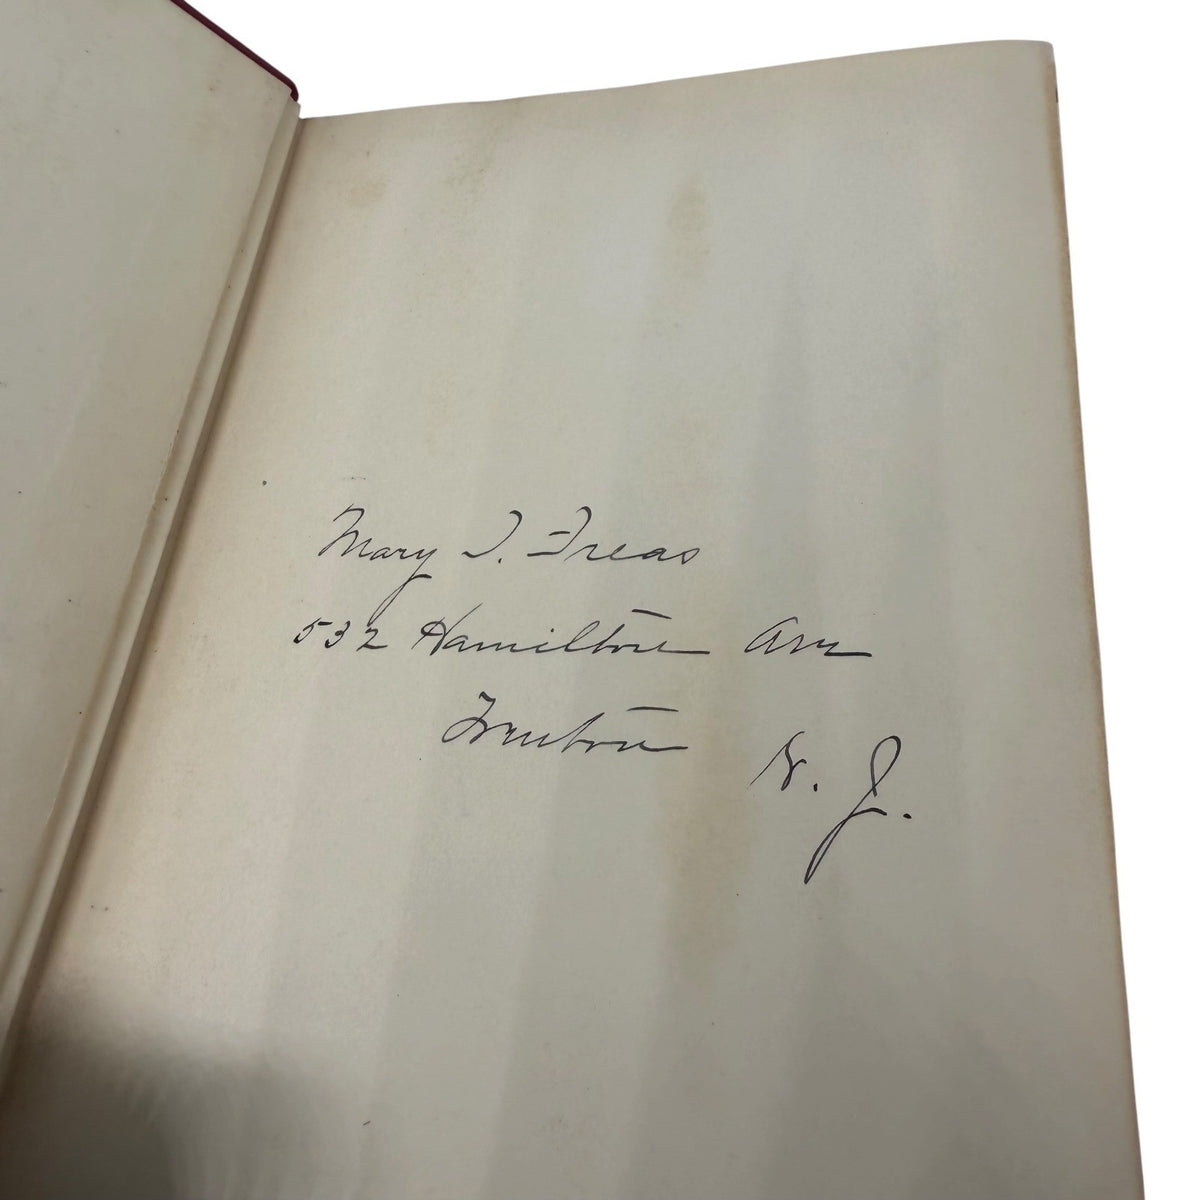 Mary T. Freas
532 Hamilton Ave
Trenton N. J.